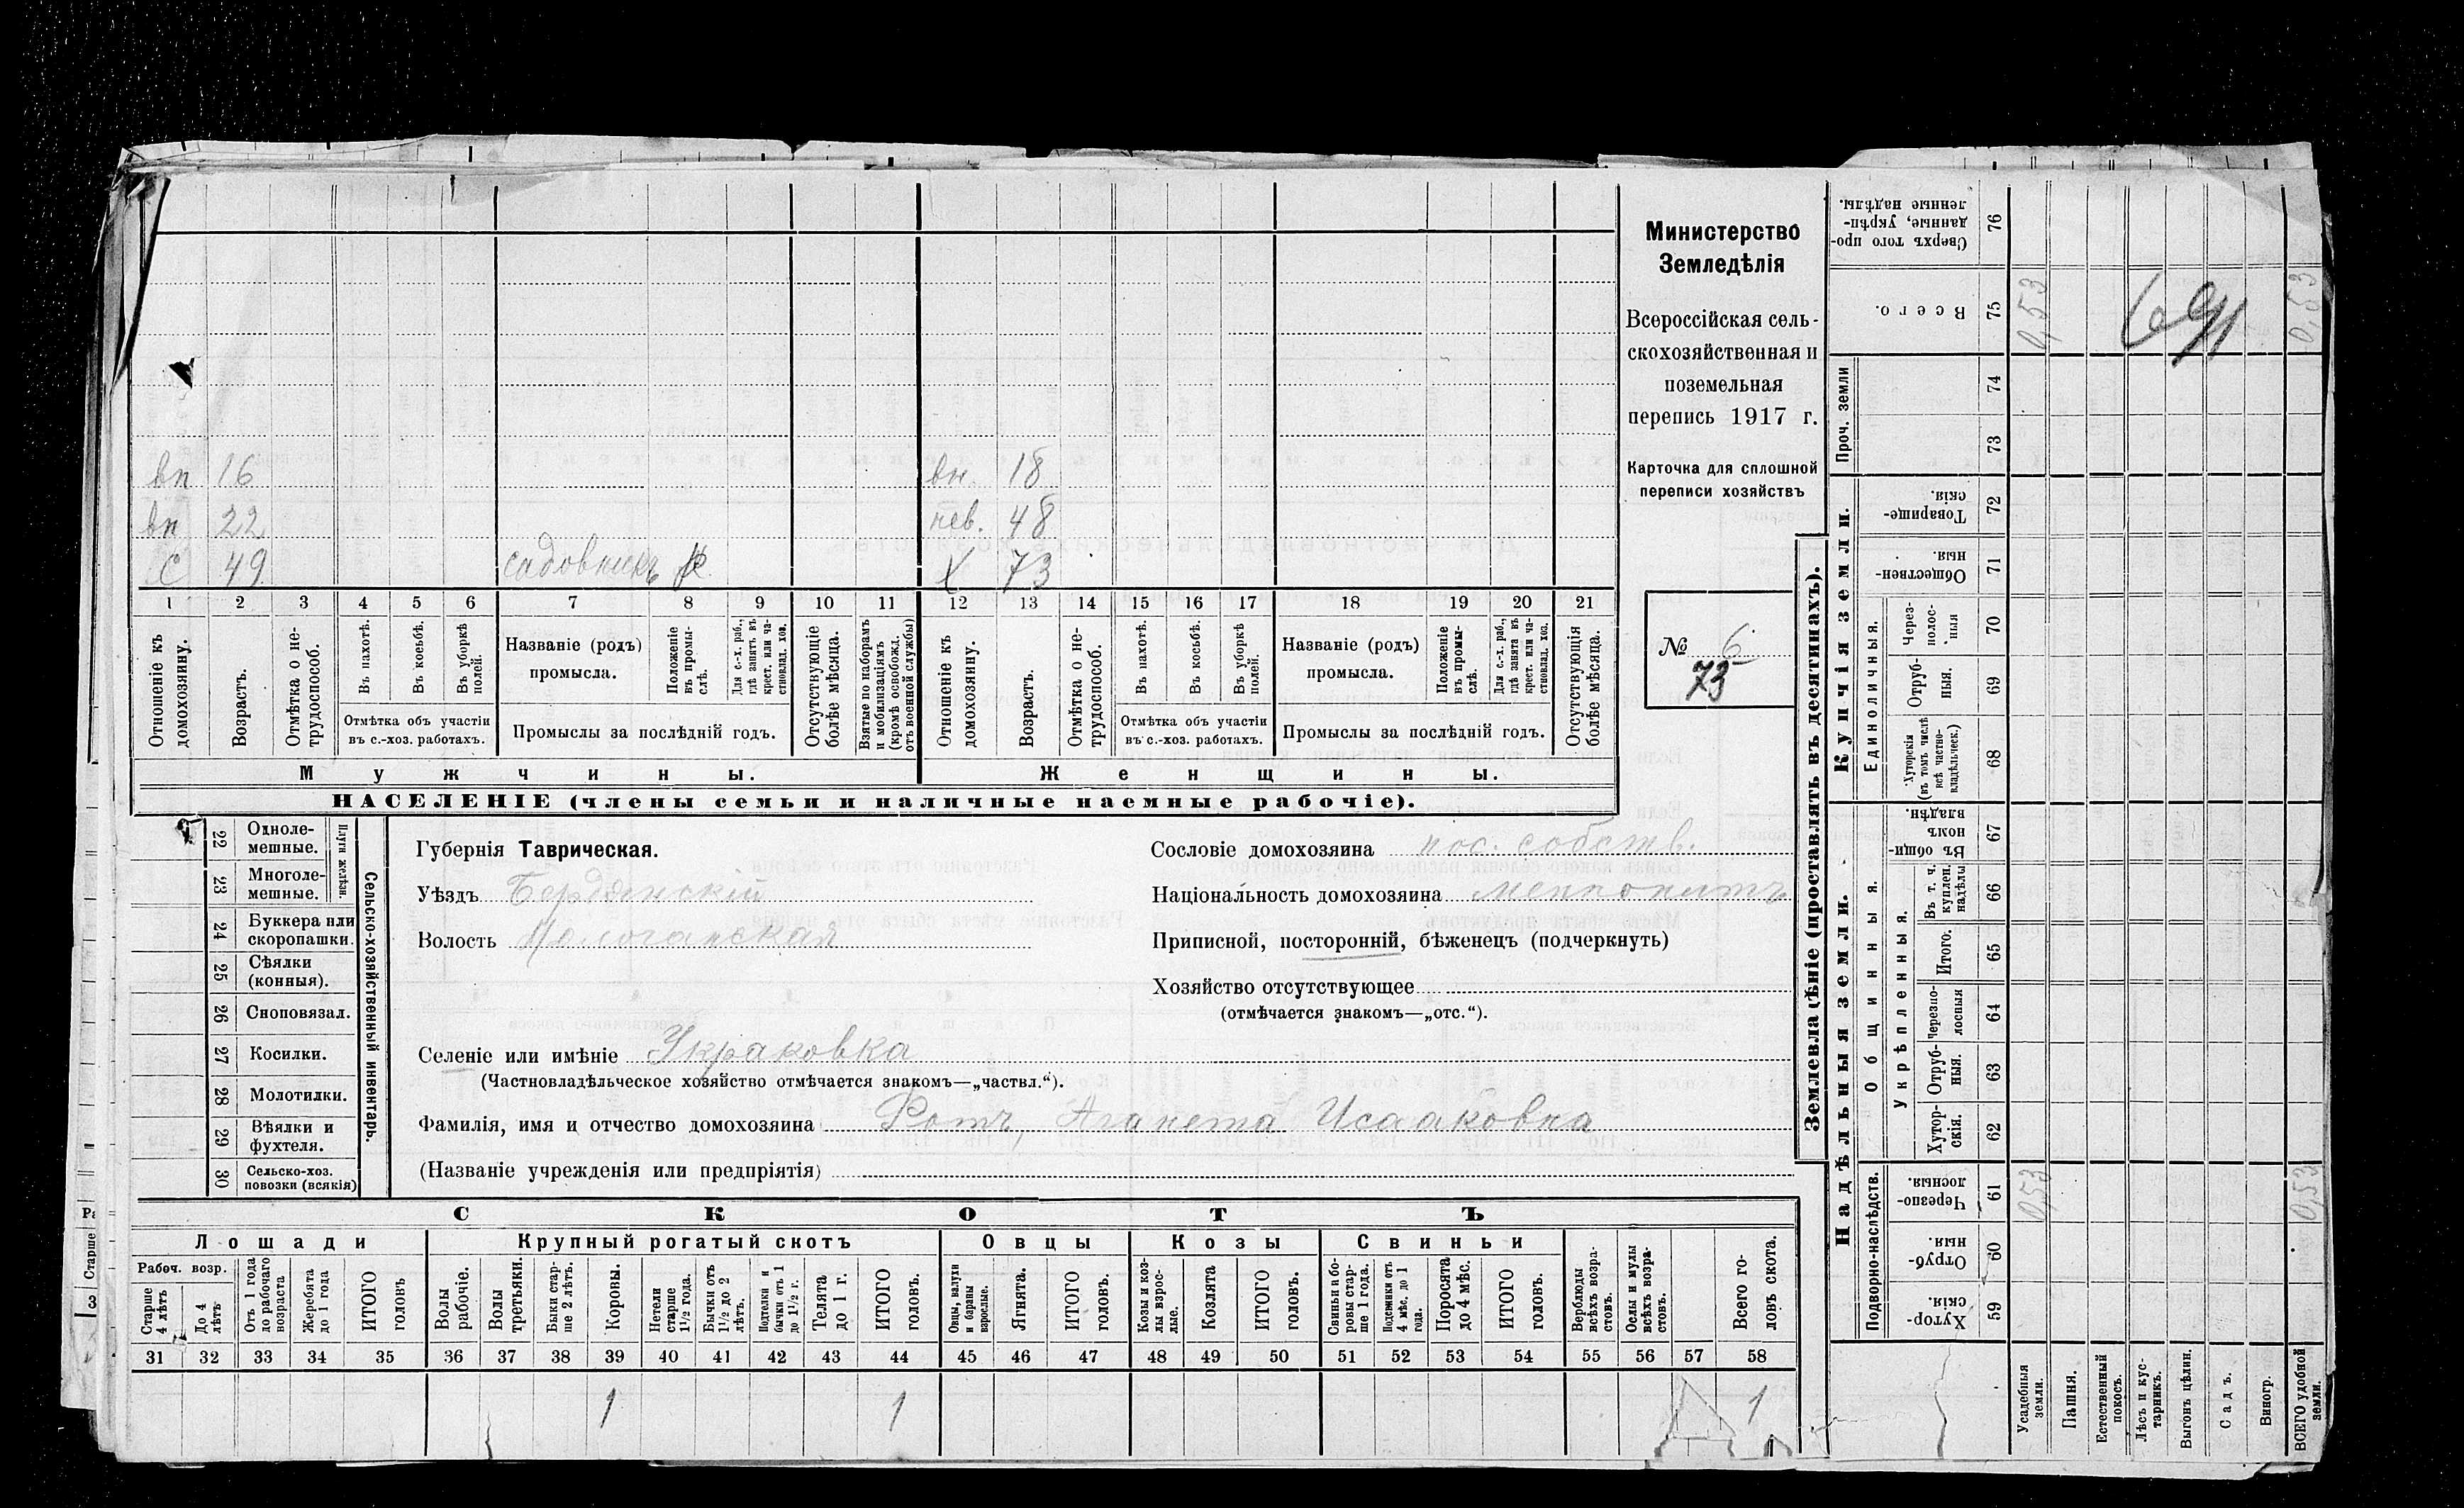 вп 16 вн. 18
вп 22 нев. 48
с 49 садовникъ Х 73
1 2 3 4 5 6 7 8 9 10 11 12 13 14 15 16 17 18 19 20 21
Отношеніе къ домохозяину.
Возрастъ.
Отмѣтка о нетрудоспособ.
Въ пахотѣ.
Въ косьбѣ.
Въ уборкѣ полей.
Отмѣтка объ участіи
въ с.-хоз. работахъ.
Названіе (родъ)
промысла.
Положеніе въ промы-слѣ.
Для с.-х. раб., гдѣ занятъ въ крест. или ча-стновлад. хоз.
Промыслы за послѣдній годъ.
Отсутствующіе болѣе мѣсяца.
Взятые по наборамъ и мобилизаціямъ (кромѣ освобожд. отъ военной службы)
Отношеніе къ домохозяину.
Возрастъ.
Отмѣтка о не-трудоспособ.
Въ пахотѣ.
Въ косьбѣ.
Въ уборкѣ полей.
Отмѣтка объ участіи
въ с.-хоз. работахъ.
Названіе (родъ)
промысла.
Положеніе въ промы-слѣ.
Для с.-х. раб., гдѣ занята въ крест. или ча-стновлад. хоз.
Промыслы за послѣдній годъ.
Отсутствующія болѣе мѣсяца.
Мужчины.
Женщины.
НАСЕЛЕНІЕ (члены семьи и наличные наемные рабочіе).
Министерство
Земледѣлія
Всероссійская сель-
скохозяйственная и
поземельная
перепись 1917 г.
Карточка для сплошной
переписи хозяйствъ
№ 6
73
22 Одноле-мешные.
23 Многоле-мешные.
Плуги желѣзн.
24 Буккера или скоропашки.
25 Сѣялки (конныя).
26 Сноповязал.
27 Косилки.
28 Молотилки.
29 Вѣялки и фухтеля.
30 Сельско-хоз. повозки (всякія)
Сельско-хозяйственный инвентарь.
Губернія Таврическая.
Уѣздъ Бердянскій
Волость Пологапская
Селеніе или имѣніе Украковка
(Частновладѣльческое хозяйство отмѣчается знакомъ—„частвл.“).
Фамилія, имя и отчество домохозяина Ротъ, Аганета Исааковна
(Названіе учрежденія или предпріятія)
Сословіе домохозяина пос. собств.
Національность домохозяина меннонитъ
Приписной, посторонній, бѣженецъ (подчеркнуть)
Хозяйство отсутствующее
(отмѣчается знакомъ—„отс.“).
СКОТЪ
Лошади
Крупный рогатый скотъ
Овцы
Козы
Свиньи
Рабоч. возр.
Старше 4 лѣтъ
До 4 лѣтъ
Отъ 1 года до рабочаго возраста
Жеребята до 1 года
ИТОГО головъ
Волы рабочіе.
Волы третьяки.
Быки стар-ше 2 лѣтъ.
Коровы.
Нетели старше 1½ года.
Бычки отъ 1½ до 2 лѣтъ.
Подтелки и бычки отъ 1 до 1½ г.
Телята до 1 г.
ИТОГО головъ.
Овцы, валухи и бараны взрослые.
Ягнята.
ИТОГО головъ.
Козы и коз-лы взрос-лые.
Козлята
ИТОГО головъ.
Свиньи и бо-ровы стар-ше 1 года.
Подсвинки отъ 4 мѣс. до 1 года.
Поросята до 4 мѣс.
ИТОГО головъ.
Верблюды всѣхъ возра-стовъ.
Ослы и мулы всѣхъ возра-стовъ.
Всего го-ловъ скота.
31 32 33 34 35 36 37 38 39 40 41 42 43 44 45 46 47 48 49 50 51 52 53 54 55 56 57 58
1 1 1
Землевладѣніе (проставлять въ десятинахъ).
Сверхъ того про-данные, укрѣп-ленные надѣлы. 76
Всего. 75 0,53 0,53
691
Проч. земли 74
73
Купчія земли.
Товарище-скія. 72
Обществен-ныя. 71
Единоличныя.
Через-полос-ныя 70
Отруб-ныя. 69
Хуторскія (въ томъ числѣ всѣ частно-владѣльческ.) 68
Надѣльныя земли.
Общинныя.
Въ общи-номъ владѣн. 67
Въ т. ч. куплен. надѣлы 66
Укрѣпленныя.
Итого. 65
Черезпо-лосныя 64
Отруб-ныя. 63
Хутор-скія. 62
Подворно-наслѣдств.
Черезпо-лосныя. 61 0,53 0,53
Отруб-ныя. 60
Хутор-скія. 59
Усадебныя земли.
Пашня.
Естественный покосъ.
Лѣсъ и кус-тарникъ.
Выгонъ цѣлин.
Садъ.
Виногр.
ВСЕГО удобной земли.